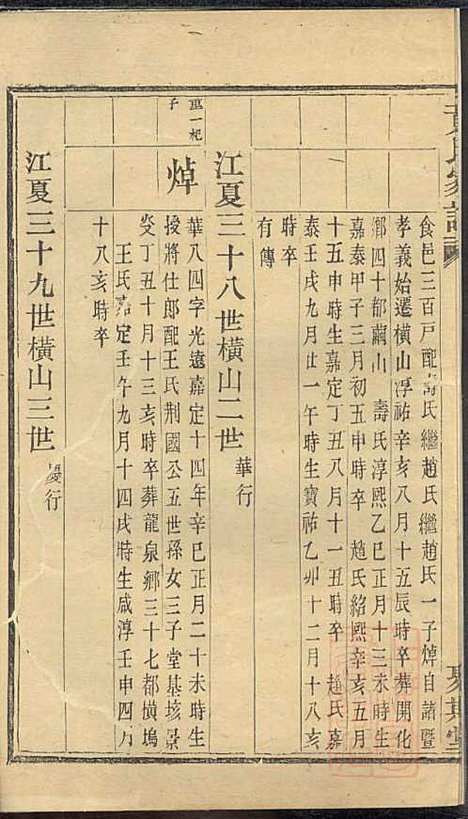 黃氏家譜
食邑三百戶配壽氏繼趙氏繼趙氏一子焯自諸暨
孝義始遷橫山淳祐辛亥八月十五辰時卒葬開化
鄉四十都繭山 壽氏淳熙乙巳正月十三未時生
嘉泰甲子三月初五申時卒 趙氏紹熙辛亥五月
十五申時生嘉定丁丑八月十一丑時卒 趙氏嘉
泰壬戌九月廿一午時生寶祐乙卯十二月十八亥
時卒
有傳
江夏三十八世橫山二世 華行
亞一杞
子
焯
華八四字光遠嘉定十四年辛巳正月二十未時生
授將仕郎配王氏荆國公五世孫女三子堂基垓景
炎丁丑十月十三亥時卒葬龍泉鄉三十七都橫塢
王氏嘉定壬午九月十四戌時生咸淳壬申四月
十八亥時卒
江夏三十九世橫山三世 慶行